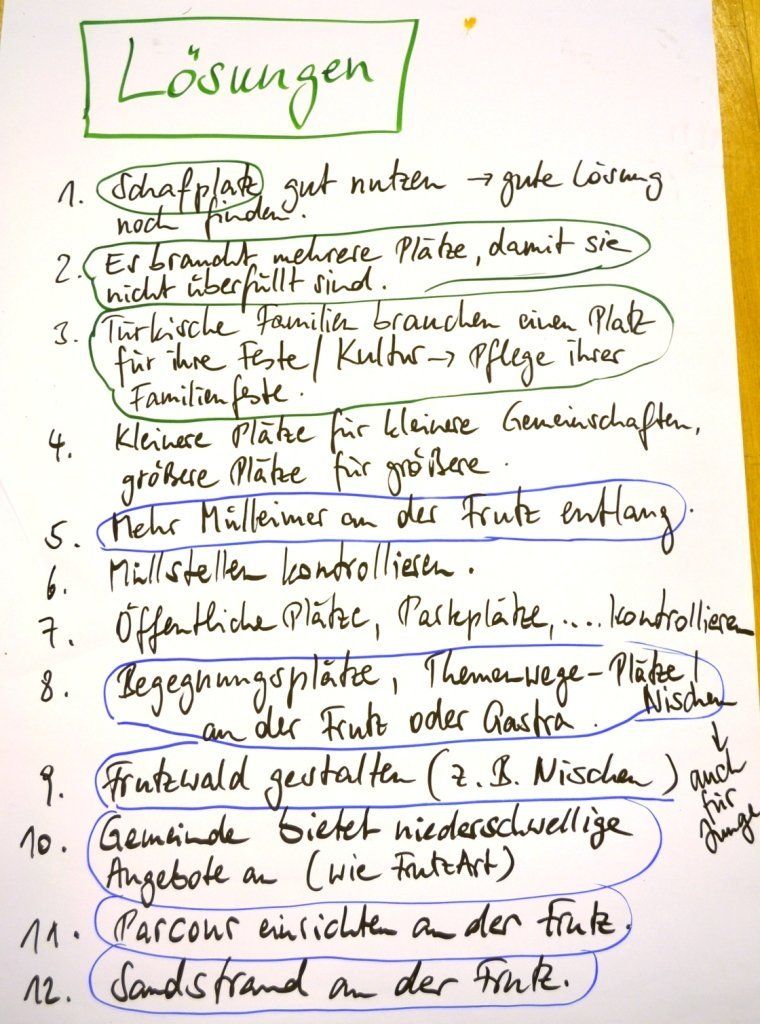 Lösungen
1. Schafplatz gut nutzen → gute Lösung
noch finden.
2. Es braucht mehrere Plätze, damit sie
nicht überfüllt sind.
3. Türkische Familien brauchen einen Platz
für ihre Feste / Kultur → Pflege ihrer
Familienfeste.
4. Kleinere Plätze für kleinere Gemeinschaften,
größere Plätze für größere.
5. Mehr Mülleimer an der Frutz entlang.
6. Müllstellen kontrollieren.
7. Öffentliche Plätze, Parkplätze, .... kontrollieren
8. Begegnungsplätze, Themenwege-Plätze /
Nischen
an der Frutz oder Gastra.
↓
9. Frutzwald gestalten (z.B. Nischen)
auch
für
Junge
10. Gemeinde bietet niederschwellige
Angebote an (wie FrutzArt)
11. Parcour einrichten an der Frutz.
12. Sandstrand an der Frutz.